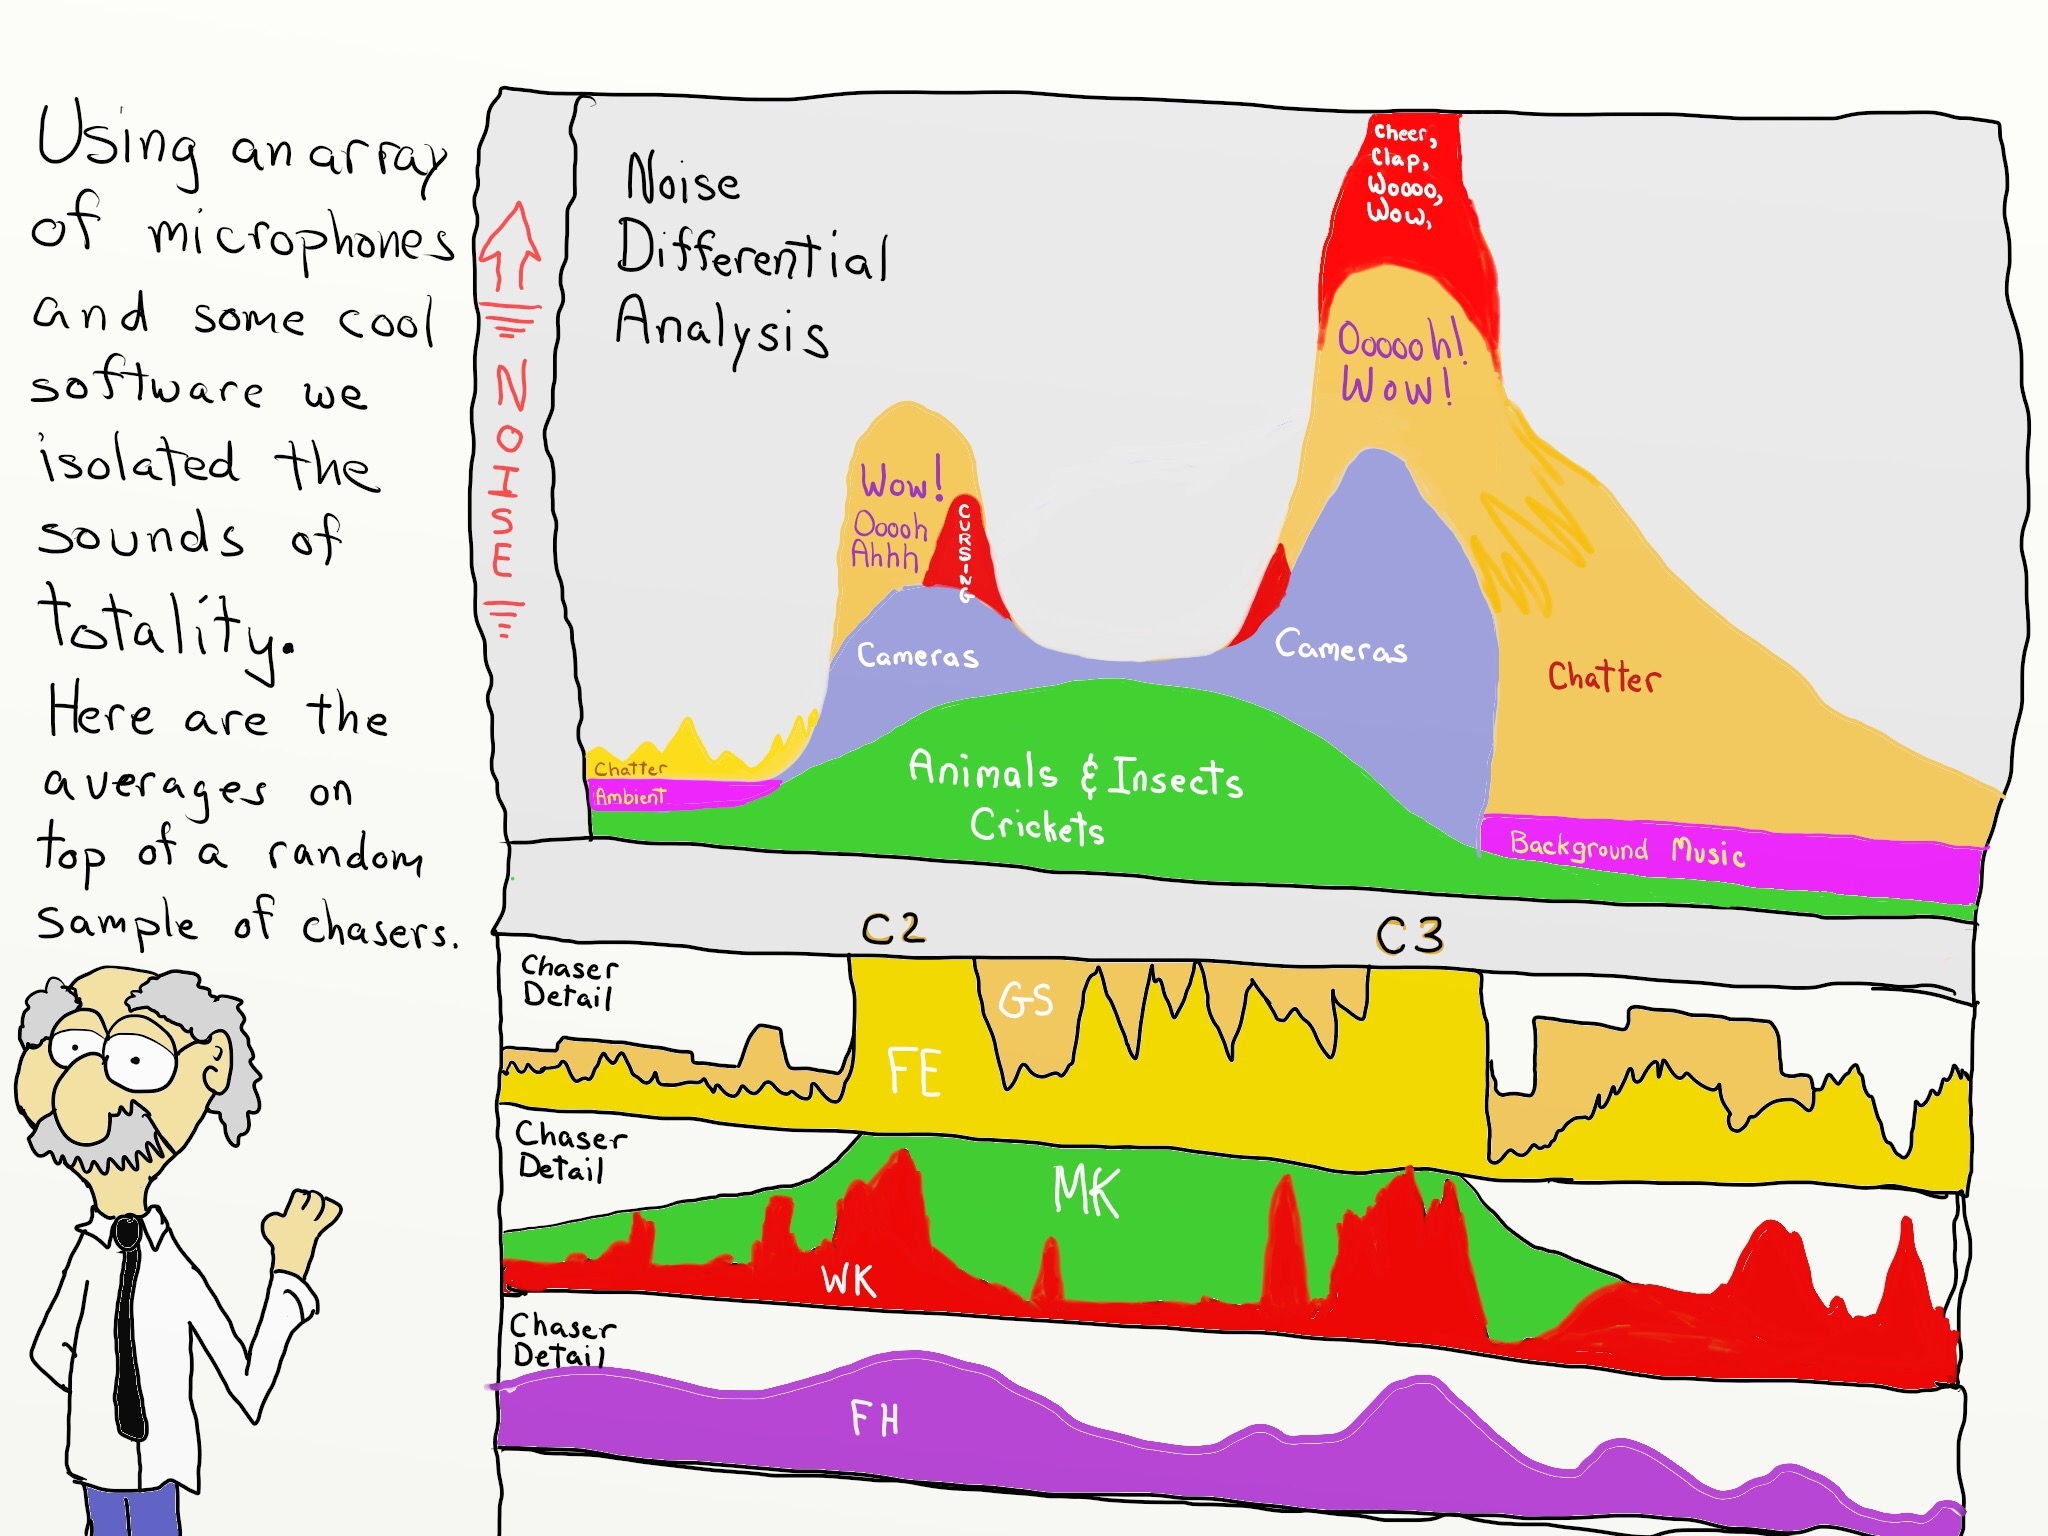 Using an array
of microphones
and some cool
software we
isolated the
sounds of
totality.
Here are the
averages on
top of a random
sample of chasers.
NOISE
Noise
Differential
Analysis
Cheer,
Clap,
Woooo,
Wow,
Oooooh!
Wow!
Wow!
Ooooh
Ahhh
CURSING
Cameras
Cameras
Chatter
Chatter
Ambient
Animals & Insects
Crickets
Background Music
C2
C3
Chaser
Detail
GS
FE
Chaser
Detail
MK
WK
Chaser
Detail
FH